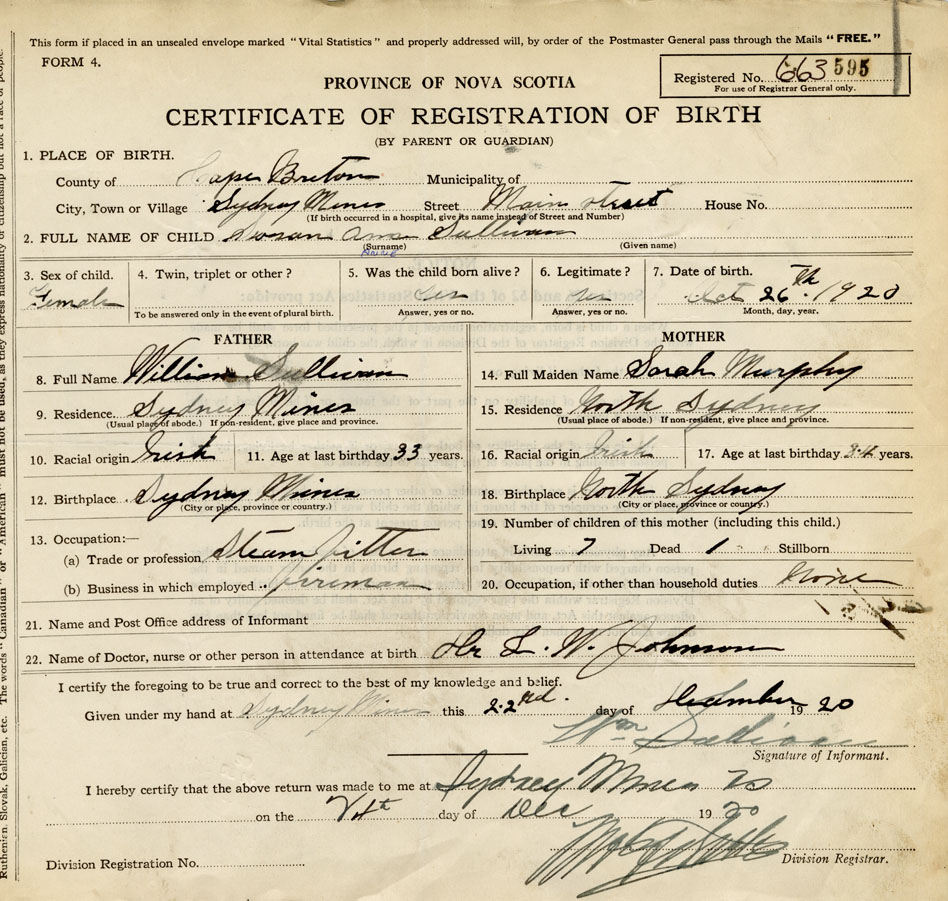 This form if placed in an unsealed envelope marked "Vital Statistics" and properly addressed will, by order of the Postmaster General pass through the Mails "FREE."
FORM 4.
Registered No. 663 595
For use of Registrar General only.
PROVINCE OF NOVA SCOTIA
CERTIFICATE OF REGISTRATION OF BIRTH
(BY PARENT OR GUARDIAN)
1. PLACE OF BIRTH.
County of Cape Breton Municipality of
City, Town or Village Sydney Mines Street Main Street House No.
(If birth occurred in a hospital, give its name instead of Street and Number)
2. FULL NAME OF CHILD Susan Ann Sullivan
(Surname) (Given name)
3. Sex of child. 4. Twin, triplet or other? 5. Was the child born alive? 6. Legitimate? 7. Date of birth.
Female yes yes Oct 26th 1920
To be answered only in the event of plural birth. Answer, yes or no. Answer, yes or no. Month, day, year.
FATHER
8. Full Name William Sullivan
9. Residence Sydney Mines
(Usual place of abode.) If non-resident, give place and province.
10. Racial origin Irish 11. Age at last birthday 33 years.
12. Birthplace Sydney Mines
(City or place, province or country.)
13. Occupation:—
(a) Trade or profession Steam Fitter
(b) Business in which employed Fireman
MOTHER
14. Full Maiden Name Sarah Murphy
15. Residence North Sydney
(Usual place of abode.) If non-resident, give place and province.
16. Racial origin Irish 17. Age at last birthday 34 years.
18. Birthplace North Sydney
(City or place, province or country.)
19. Number of children of this mother (including this child.)
Living 7 Dead 1 Stillborn
20. Occupation, if other than household duties None
21. Name and Post Office address of Informant
22. Name of Doctor, nurse or other person in attendance at birth Dr L. W. Johnson
I certify the foregoing to be true and correct to the best of my knowledge and belief.
Given under my hand at Sydney Mines this 22nd day of December 1920
Wm Sullivan
Signature of Informant.
I hereby certify that the above return was made to me at Sydney Mines
on the day of Dec 1920
Division Registration No. Division Registrar.
Ruthenian, Slovak, Galician, etc. The words "Canadian" or "American" must not be used, as they express nationality or citizenship but not a race of people.